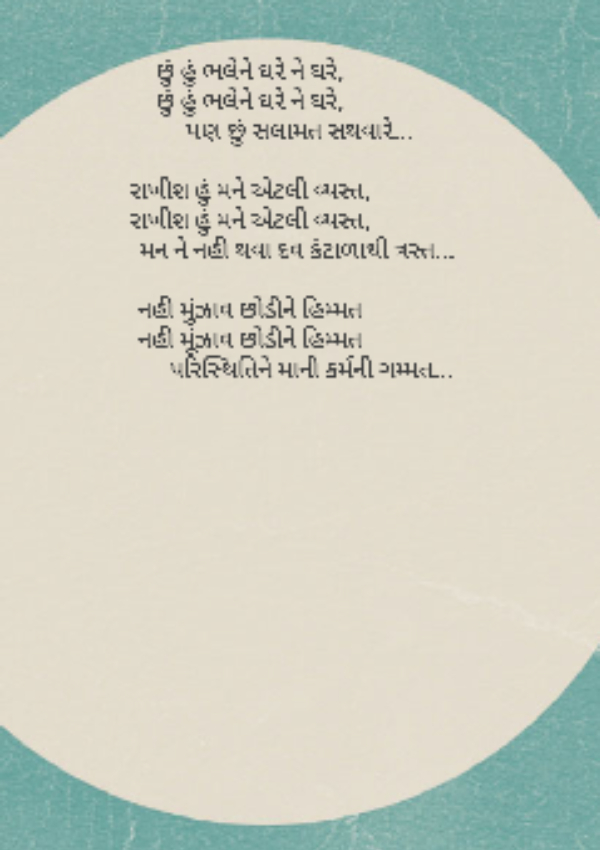 છું હું ભલેને ઘરે ને ઘરે,
છું હું ભલેને ઘરે ને ઘરે,
પણ છું સલામત સથવારે...
રાખીશ હું મને એટલી વ્યસ્ત,
રાખીશ હું મને એટલી વ્યસ્ત,
મન ને નહી થવા દવ કંટાળાથી ત્રસ્ત...
નહી મુંઝાવ છોડીને હિમ્મત
નહી મુંઝાવ છોડીને હિમ્મત
પરિસ્થિતિને માની કર્મની ગમ્મત...